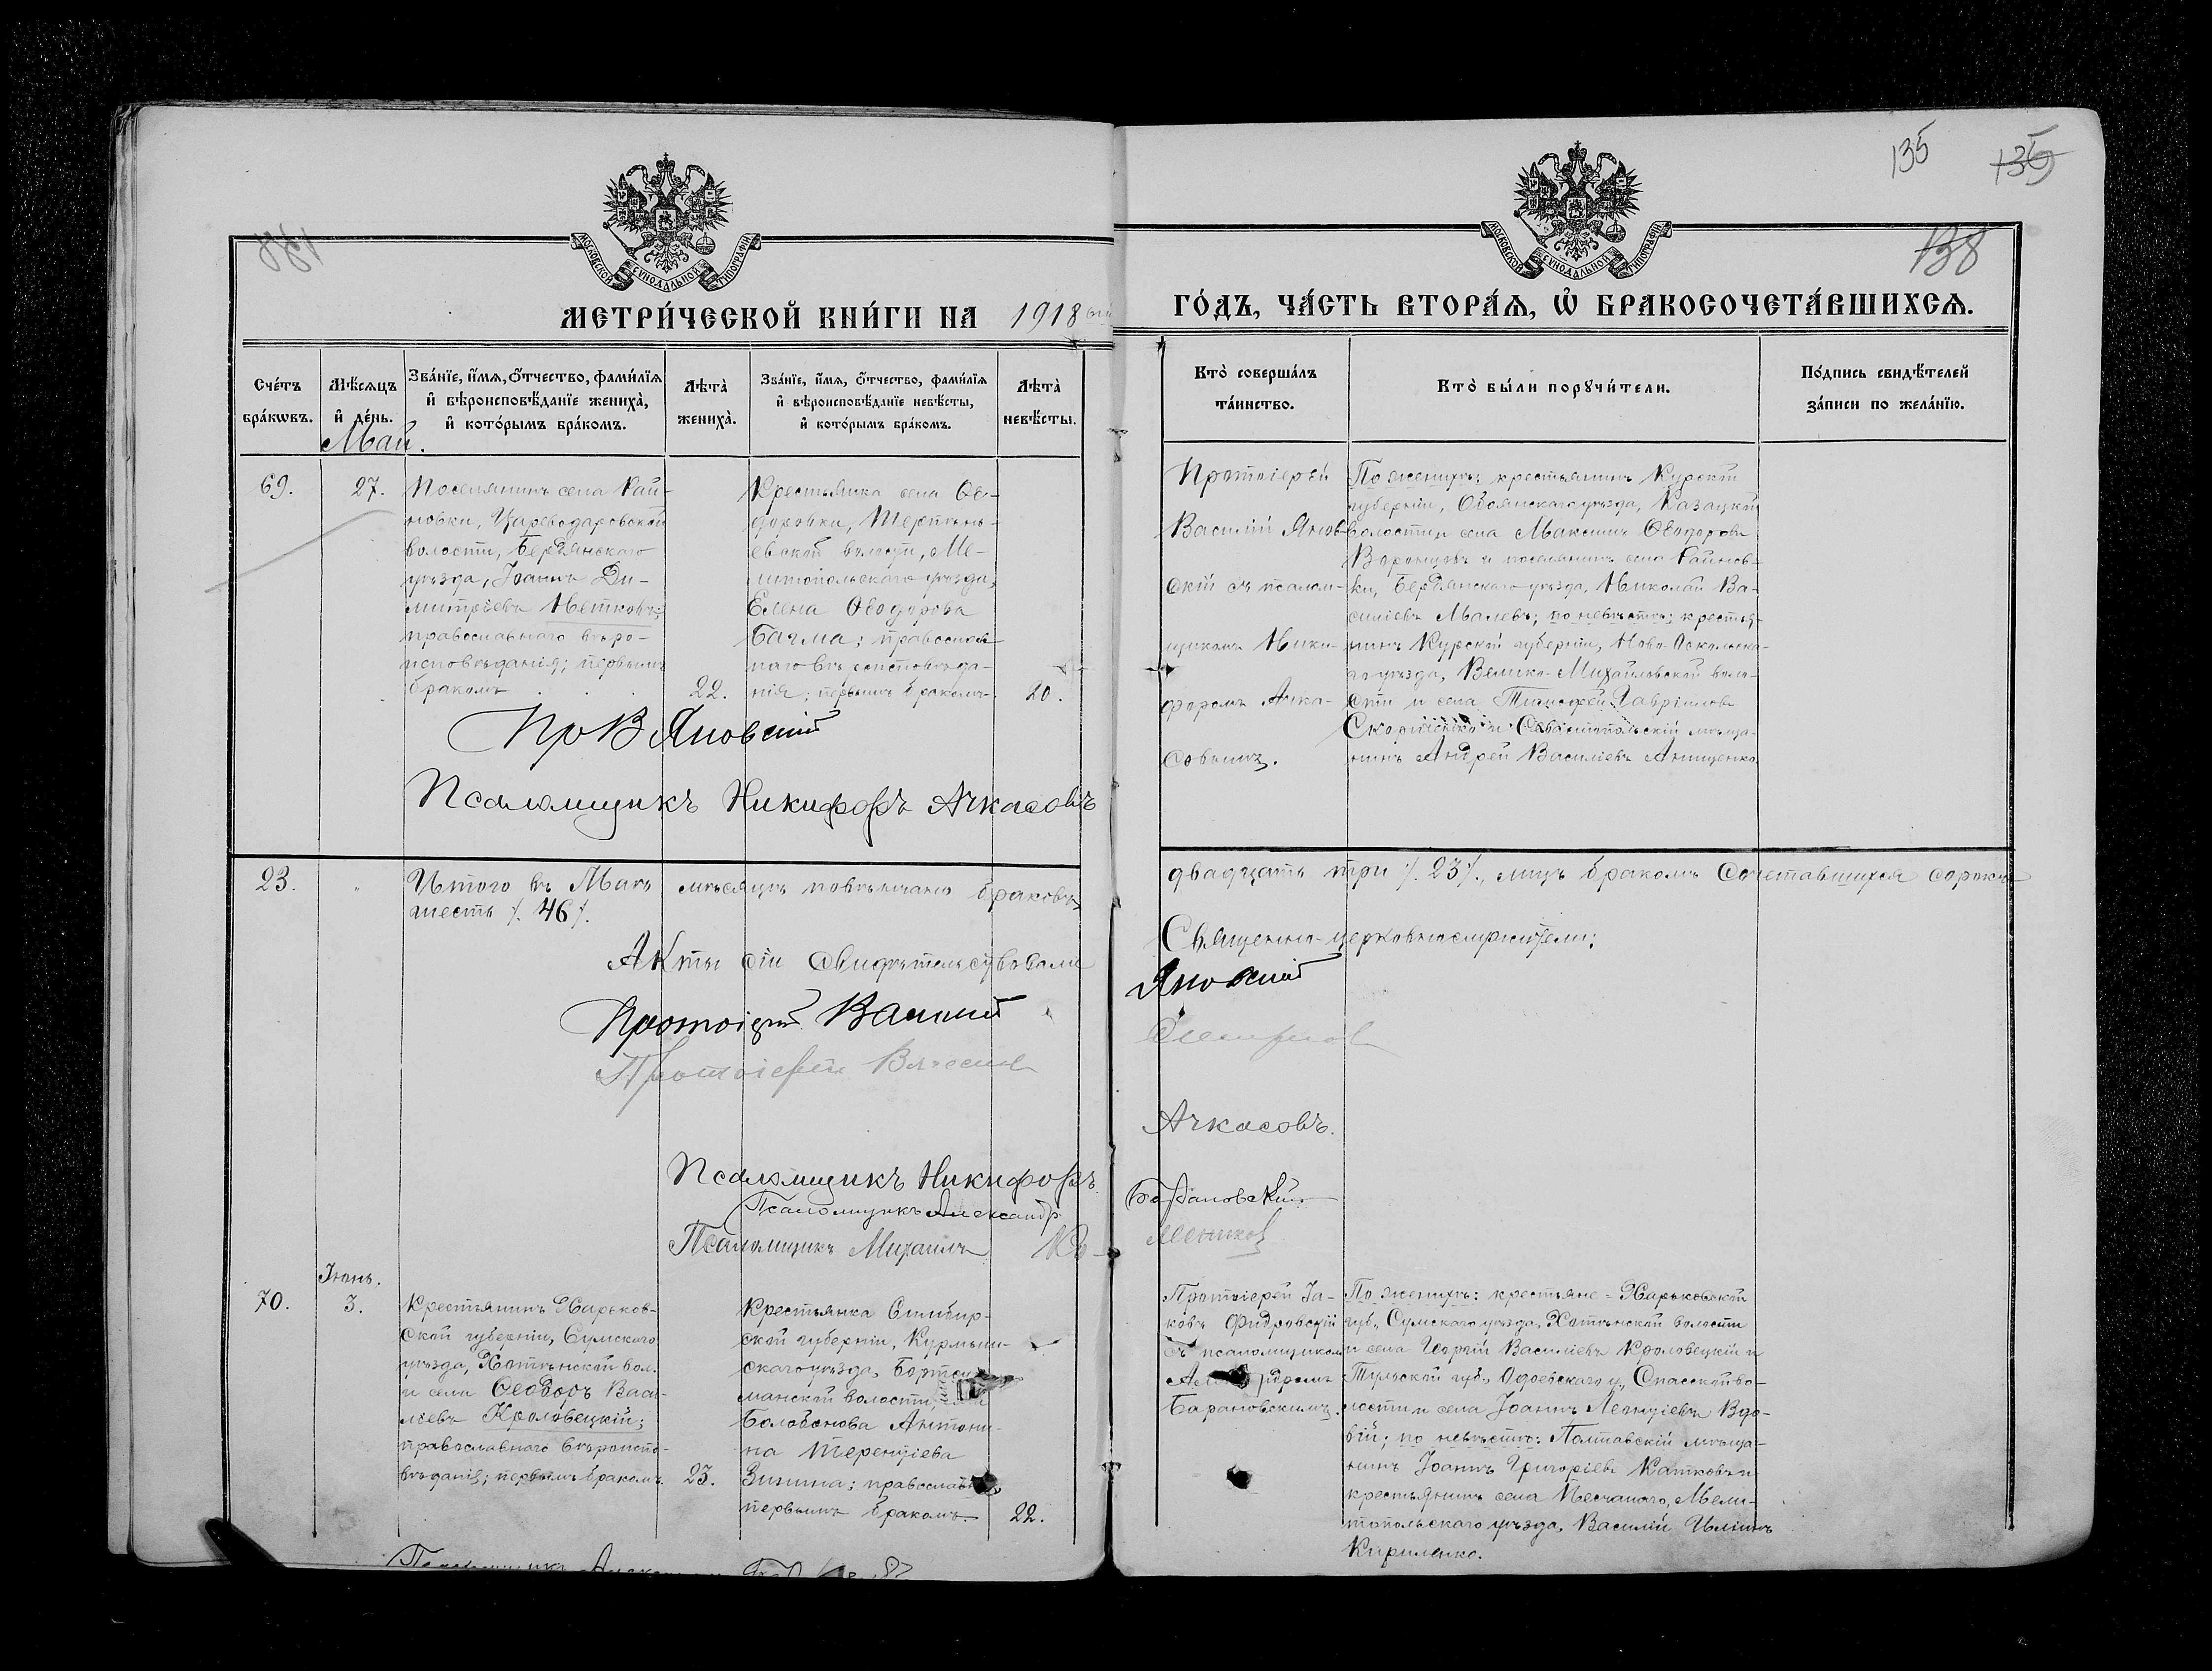 135
135
138
МОСКОВСКОЙ СѴНОДАЛЬНОЙ ТИПОГРАФІИ
МОСКОВСКОЙ СѴНОДАЛЬНОЙ ТИПОГРАФІИ
МЕТРИ́ЧЕСКОЙ КНИ́ГИ НА 1918
ГО́ДЪ, ЧА́СТЬ ВТОРА́Ѧ, Ѡ҆ БРАКОСОЧЕТА́ВШИХСѦ.
Сче́тъ
бра́кѡвъ.
Мѣ́сѧцъ
и҆ де́нь.
Май.
Зва́нїе, и҆́мѧ, ѻ҆́тчество, фами́лїѧ
и҆ вѣроисповѣ́данїе жениха̀,
и҆ кото́рымъ бра́комъ.
Лѣта̀
жениха̀.
Зва́нїе, и҆́мѧ, ѻ҆́тчество, фами́лїѧ
и҆ вѣроисповѣ́данїе невѣ́сты,
и҆ кото́рымъ бра́комъ.
Лѣта̀
невѣ́сты.
Кто̀ соверша́лъ
та́инство.
Кто̀ бы́ли порꙋчи́тели.
По́дпись свидѣ́телей
за́писи по жела́нїю.
69.
27.
Поселянинъ села Рай-
новки, Цареводаровской
волости, Бердянского
уѣзда, Іоаннъ Ди-
митріевъ Нетковъ;
православнаго вѣро-
исповѣданія; первымъ
бракомъ
22.
Крестьянка села Ѳе-
доровки, Терпѣнь-
евской волости, Ме-
литопольскаго уѣзда,
Елена Ѳеодорова
Багма; православ-
наго вѣроисповѣда-
нія; первымъ бракомъ.
20.
Протоіерей
Василій Янов-
скій съ псалом-
щикомъ Ники-
форомъ Ачка-
совымъ.
По женихѣ: крестьянинъ Курской
губерніи, Обоянскаго уѣзда, Казацкой
волости и села Максимъ Ѳеодоровъ
Воронцовъ и поселянинъ села Райнов-
ки, Бердянскаго уѣзда, Николай Ва-
силіевъ Малевъ; по невѣстѣ: крестья-
нинъ Курской губерніи, Ново-Оскольска-
го уѣзда, Велико-Михайловской воло-
сти и села Тимофей Гавріиловъ
и Севастопольскій мѣща-
нинъ Андрей Василіевъ Анищенко.
Пр В Яновскій
Псаломщикъ Никифоръ Ачкасовъ
23.
"
Итого въ Маѣ мѣсяцѣ повѣнчано браковъ двадцать три /. 23 /., лицъ бракомъ сочетавшихся сорокъ
шесть /. 46 /.
Акты сіи свидѣтельствовали Священно-церковнослужители:
Протоіерей Василій Яновскій
Протоіерей
Псаломщикъ Никифоръ Ачкасовъ.
Псаломщикъ Александръ Барановскій
Псаломщикъ Михаилъ
Іюнь.
70.
3.
Крестьянинъ Харьков-
ской губерніи, Сумскаго
уѣзда, Хотѣнской вол.
и села Ѳеодоръ Васи-
ліевъ Кроловецкій;
православнаго вѣроиспо-
вѣданія; первымъ бракомъ.
23.
Крестьянка Симбир-
ской губерніи, Курмыш-
скаго уѣзда,
манской волости, села
Болобонова Антони-
на Терентіева
Зинина; православн.
первымъ бракомъ.
22.
Протоіерей Іа-
ковъ Фидровскій
съ псаломщикомъ
Александромъ
Барановскимъ.
По женихѣ: крестьяне - Харьковской
губ., Сумскаго уѣзда, Хотѣнской волости
и села Георгій Василіевъ Кроловецкій и
Тульской губ., Одоевскаго у., Спасской во-
лости и села Іоаннъ Леонтіевъ Вдо-
вій; по невѣстѣ: Полтавскій мѣща-
нинъ Іоаннъ Григоріевъ Катковъ и
крестьянинъ села Песчанаго, Мели-
топольскаго уѣзда, Василій Иліинъ
Кириленко.
Псаломщикъ Александръ